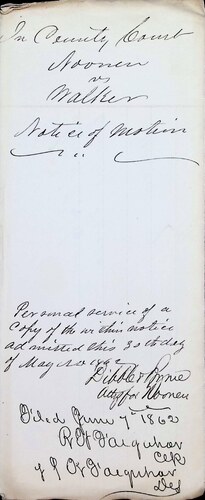 In County Court
Noonen
vs
Walker
Notice of Motion
Personal service of a
copy of the within notice
admitted this 30th day
of May AD 1862
Dibble & Byrne
Attys for Noonen
Filed June 7th 1862
R H Farquhar
Clk
J S H Farquhar
Dep